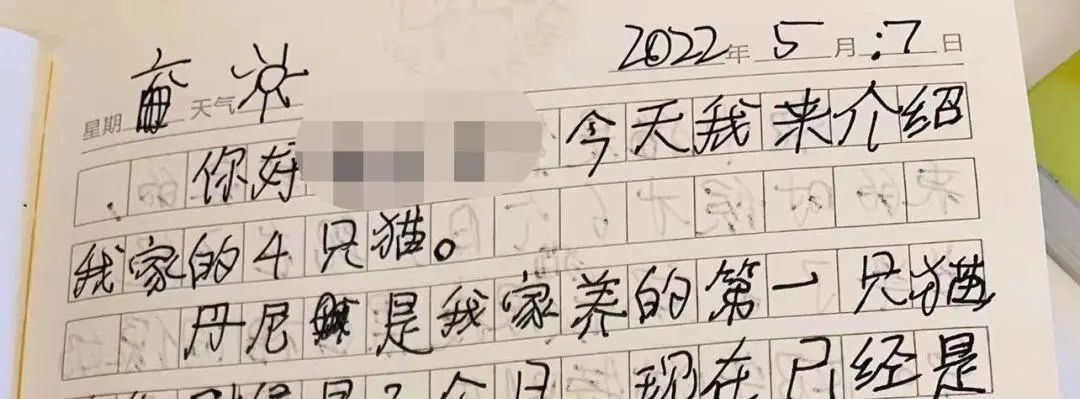 2022年5月:7日
星期 天气
你好 今天我来介绍
我家的4只猫。
丹尼是我家养的第一只猫
个月 现在已经是